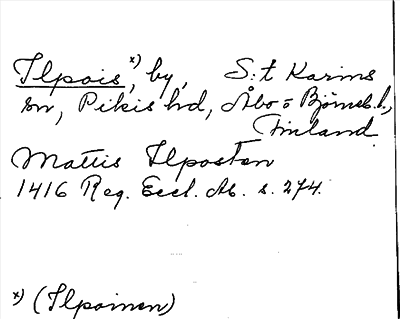 Ilpois, x) by, S:t Karins
sn, Pikis hd, Åbo o Björneb. l.,
Finland.
Mattis Ilposten
1416 Reg. Eccl. Ab. s. 274.
x) (Ilpoinen)